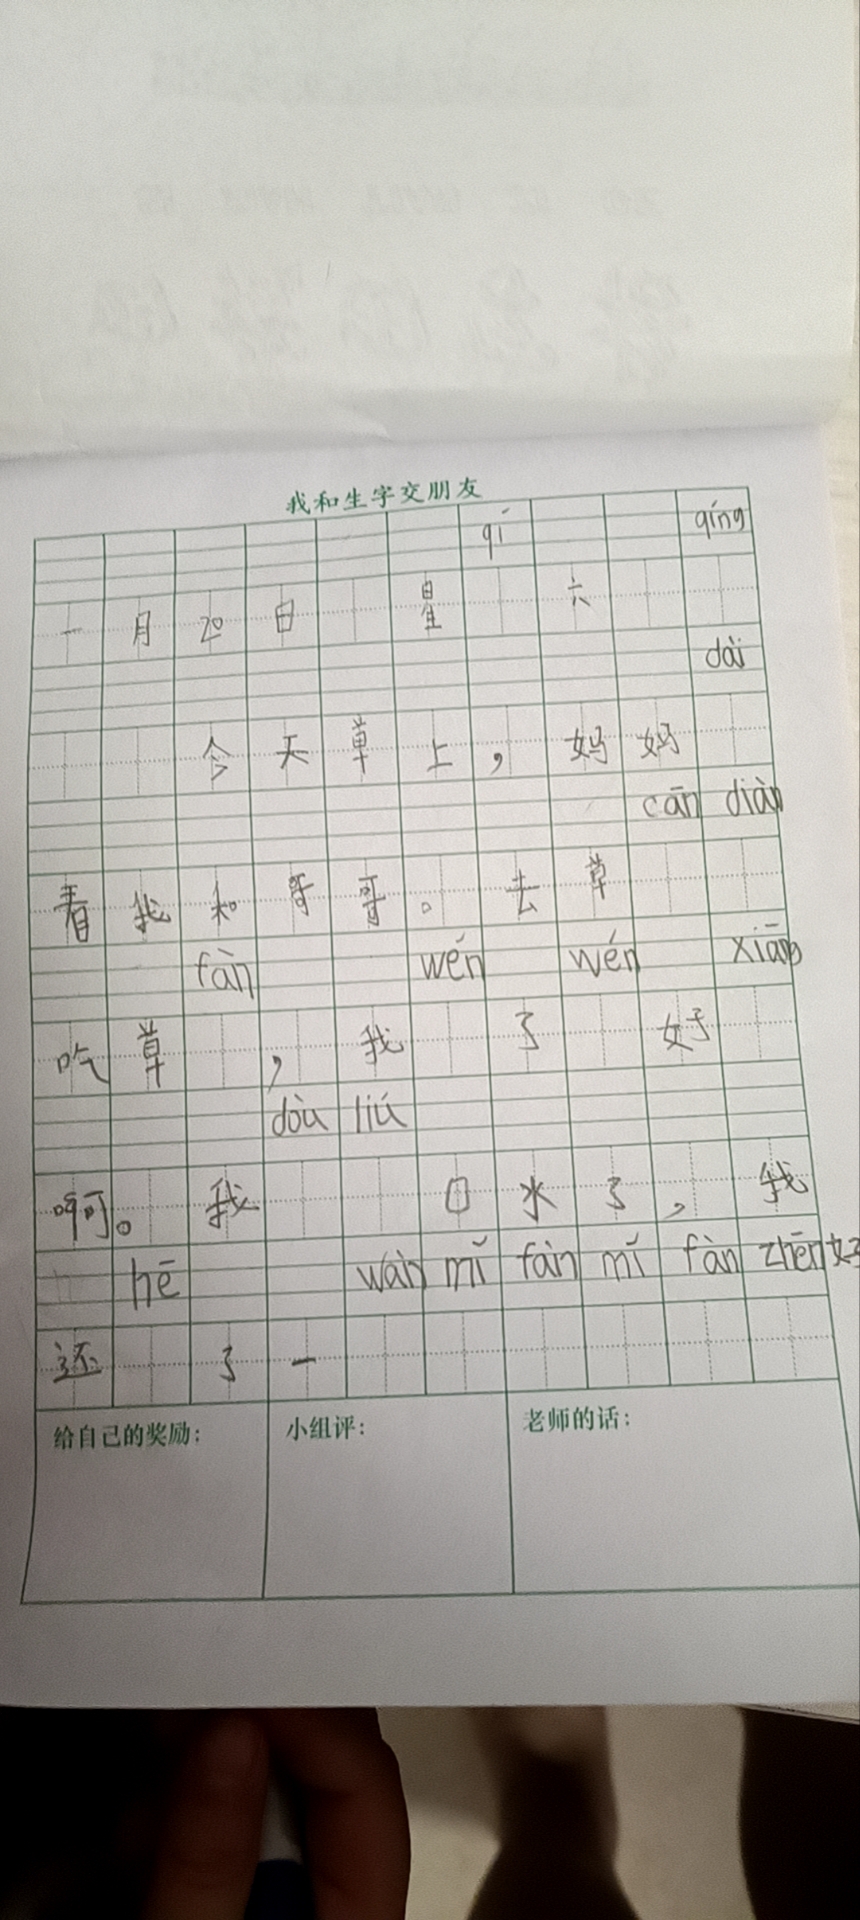 我和生字交朋友
qí qíng
一月20日 星 六
dài
今天草上，妈妈
cān diàn
着我和哥哥。去草
fàn wén wén xiāng
吃草 ，我 了 好
dòu liú
啊。我 口水了，我
hē wàn mǐ fàn mǐ fàn zhēn 好
还 了一
给自己的奖励： 小组评： 老师的话：